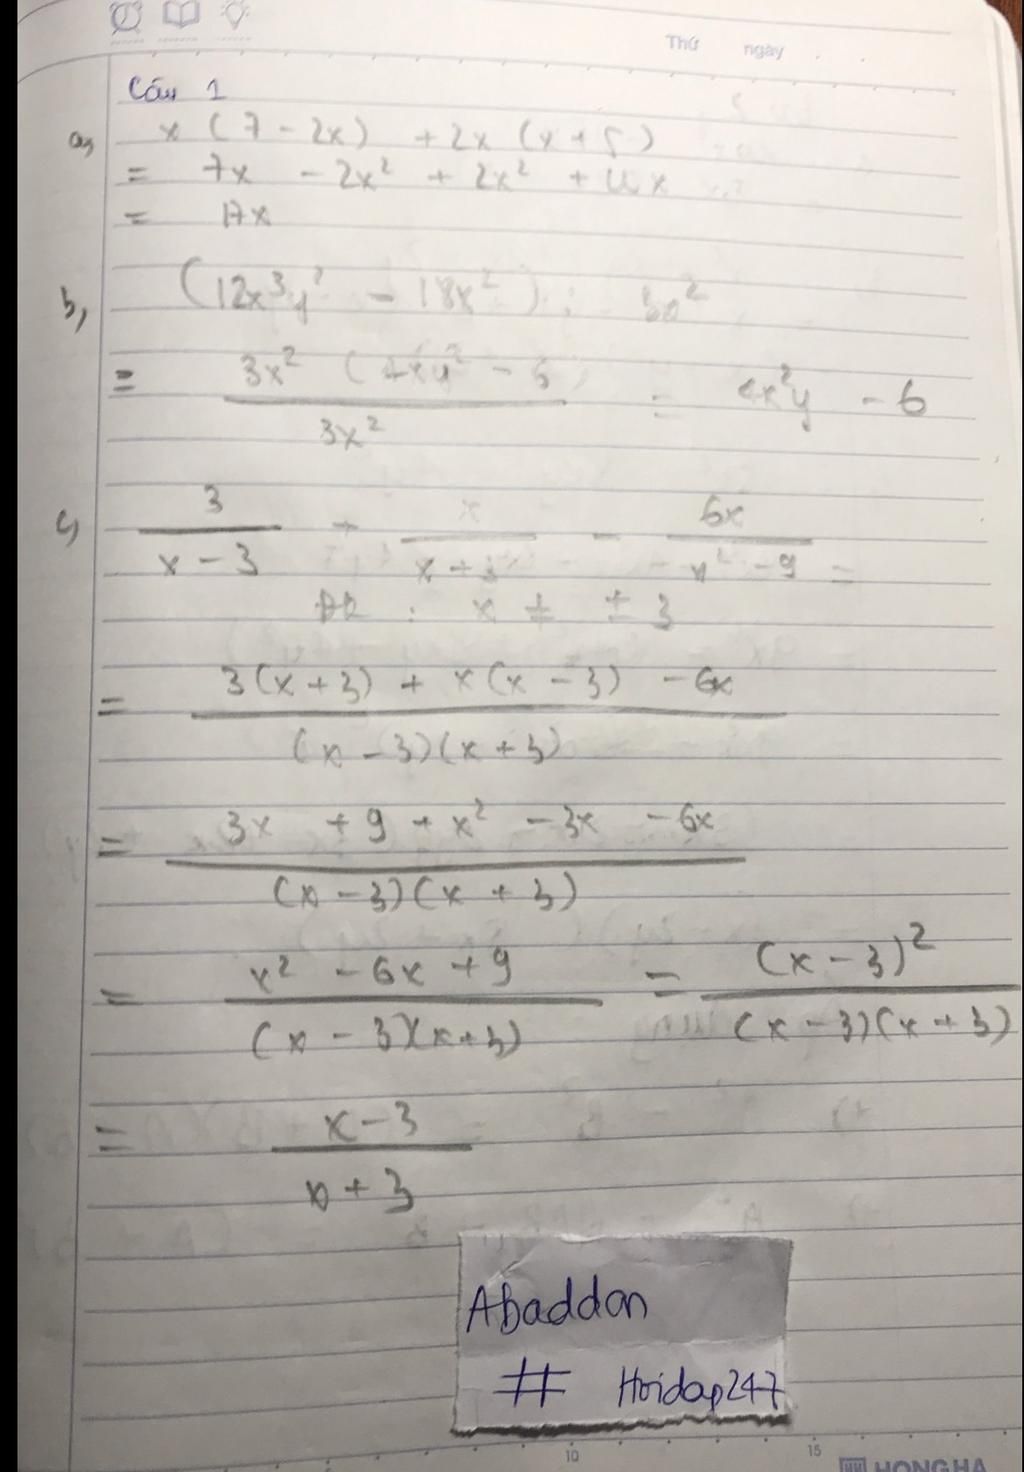 Thứ ngày
Câu 1
a, x(7 - 2x) + 2x(x + 5)
= 7x - 2x² + 2x² + 10x
= 17x
b, (12x³y² - 18x²) : 3x²
= 3x²(4xy² - 6) / 3x² = 4x²y - 6
c, 3 / (x - 3) + x / (x + 3) - 6x / (x² - 9) =
ĐK : x ≠ ± 3
= (3(x + 3) + x(x - 3) - 6x) / (x - 3)(x + 3)
= (3x + 9 + x² - 3x - 6x) / (x - 3)(x + 3)
= (x² - 6x + 9) / (x - 3)(x + 3) = (x - 3)² / (x - 3)(x + 3)
= (x - 3) / (x + 3)
Abaddon
# Hoidap247
10 15
HONG HA